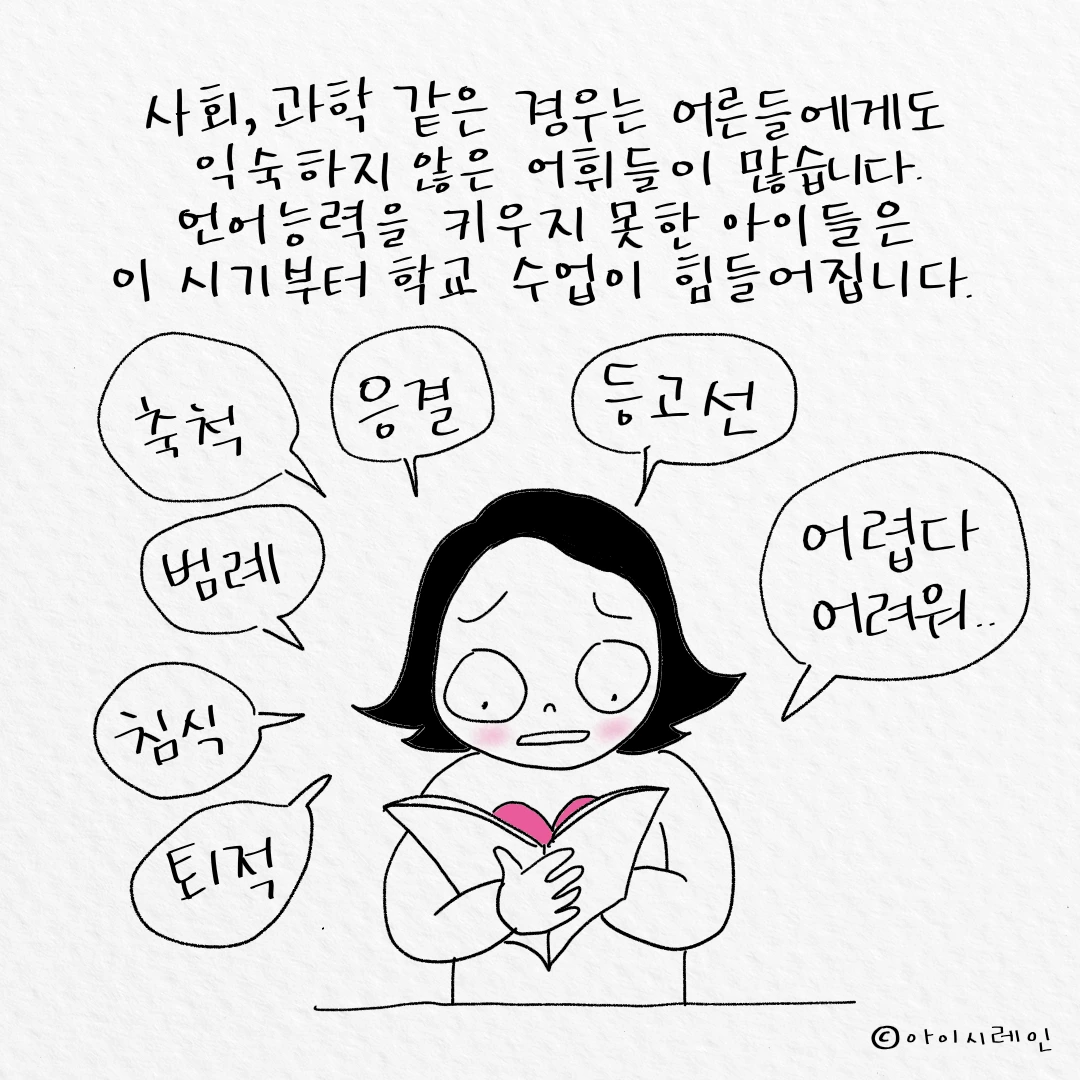 사회, 과학 같은 경우는 어른들에게도
익숙하지 않은 어휘들이 많습니다.
언어능력을 키우지 못한 아이들은
이 시기부터 학교 수업이 힘들어집니다.
축척
응결
등고선
범례
어렵다
어려워..
침식
퇴적
©아이시레인